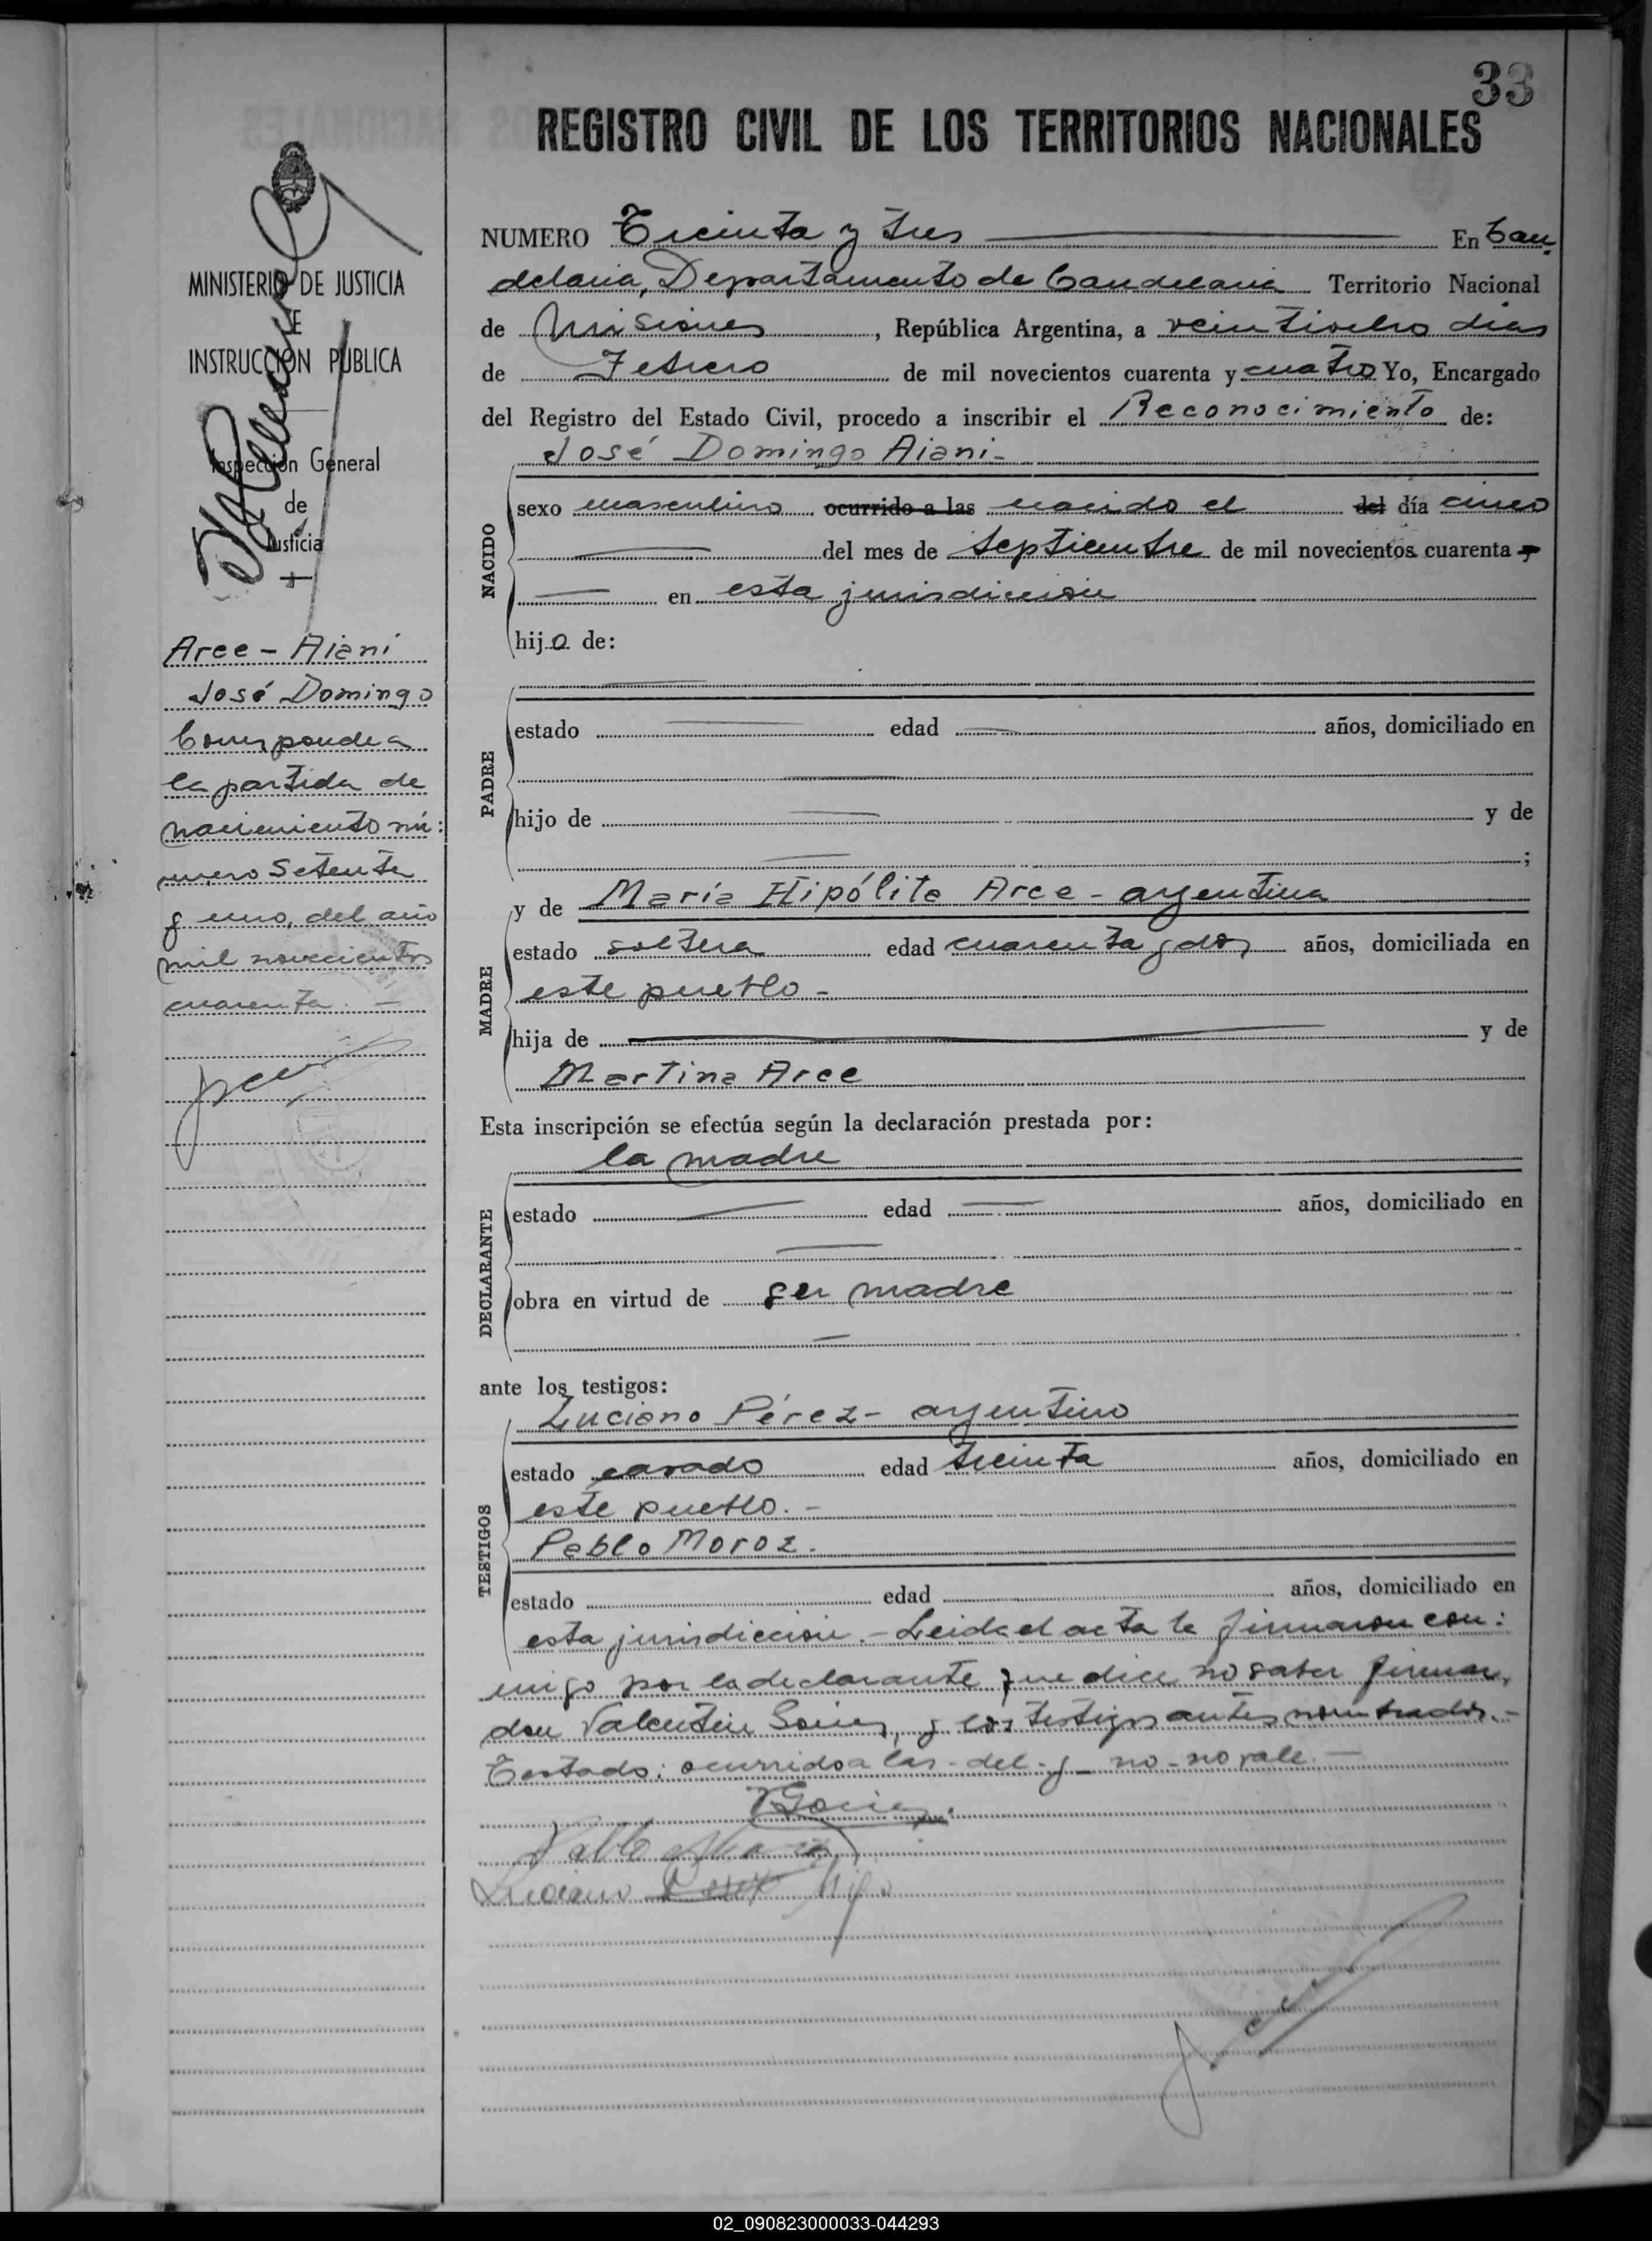 33
REGISTRO CIVIL DE LOS TERRITORIOS NACIONALES
NUMERO Treinta y tres En Can-
delaria, Departamento de Candelaria Territorio Nacional
de Misiones, República Argentina, a veintiocho días
de Febrero de mil novecientos cuarenta y cuatro Yo, Encargado
del Registro del Estado Civil, procedo a inscribir el Reconocimiento de:
José Domingo Aiani-
NACIDO
sexo masculino ocurrido a las nacido el del día cinco
del mes de Septiembre de mil novecientos cuarenta y
en esta jurisdicción
hijo de:
PADRE
estado edad años, domiciliado en
hijo de y de
;
MADRE
y de María Hipólita Arce - argentina
estado soltera edad cuarenta y dos años, domiciliada en
este pueblo -
hija de y de
Martina Arce
Esta inscripción se efectúa según la declaración prestada por:
la madre
DECLARANTE
estado edad años, domiciliado en
obra en virtud de ser madre
ante los testigos:
TESTIGOS
Luciano Pérez - argentino
estado casado edad treinta años, domiciliado en
este pueblo. -
Pablo Moroz.
estado edad años, domiciliado en
esta jurisdicción. - Leida el acta la firmaron con:
migo por la declarante que dice no saber firmar,
don Valentín y los testigos antes nombrados. -
Testado: ocurrido a las - del - y - no - no vale. -
Pablo
Luciano Perez
MINISTERIO DE JUSTICIA
E
INSTRUCCIÓN PUBLICA
Inspección General
de
Justicia
Arce - Aiani
José Domingo
Corresponde a
la partida de
nacimiento nú:
mero Setenta
y uno, del año
mil novecientos
cuarenta. -
02_090823000033-044293